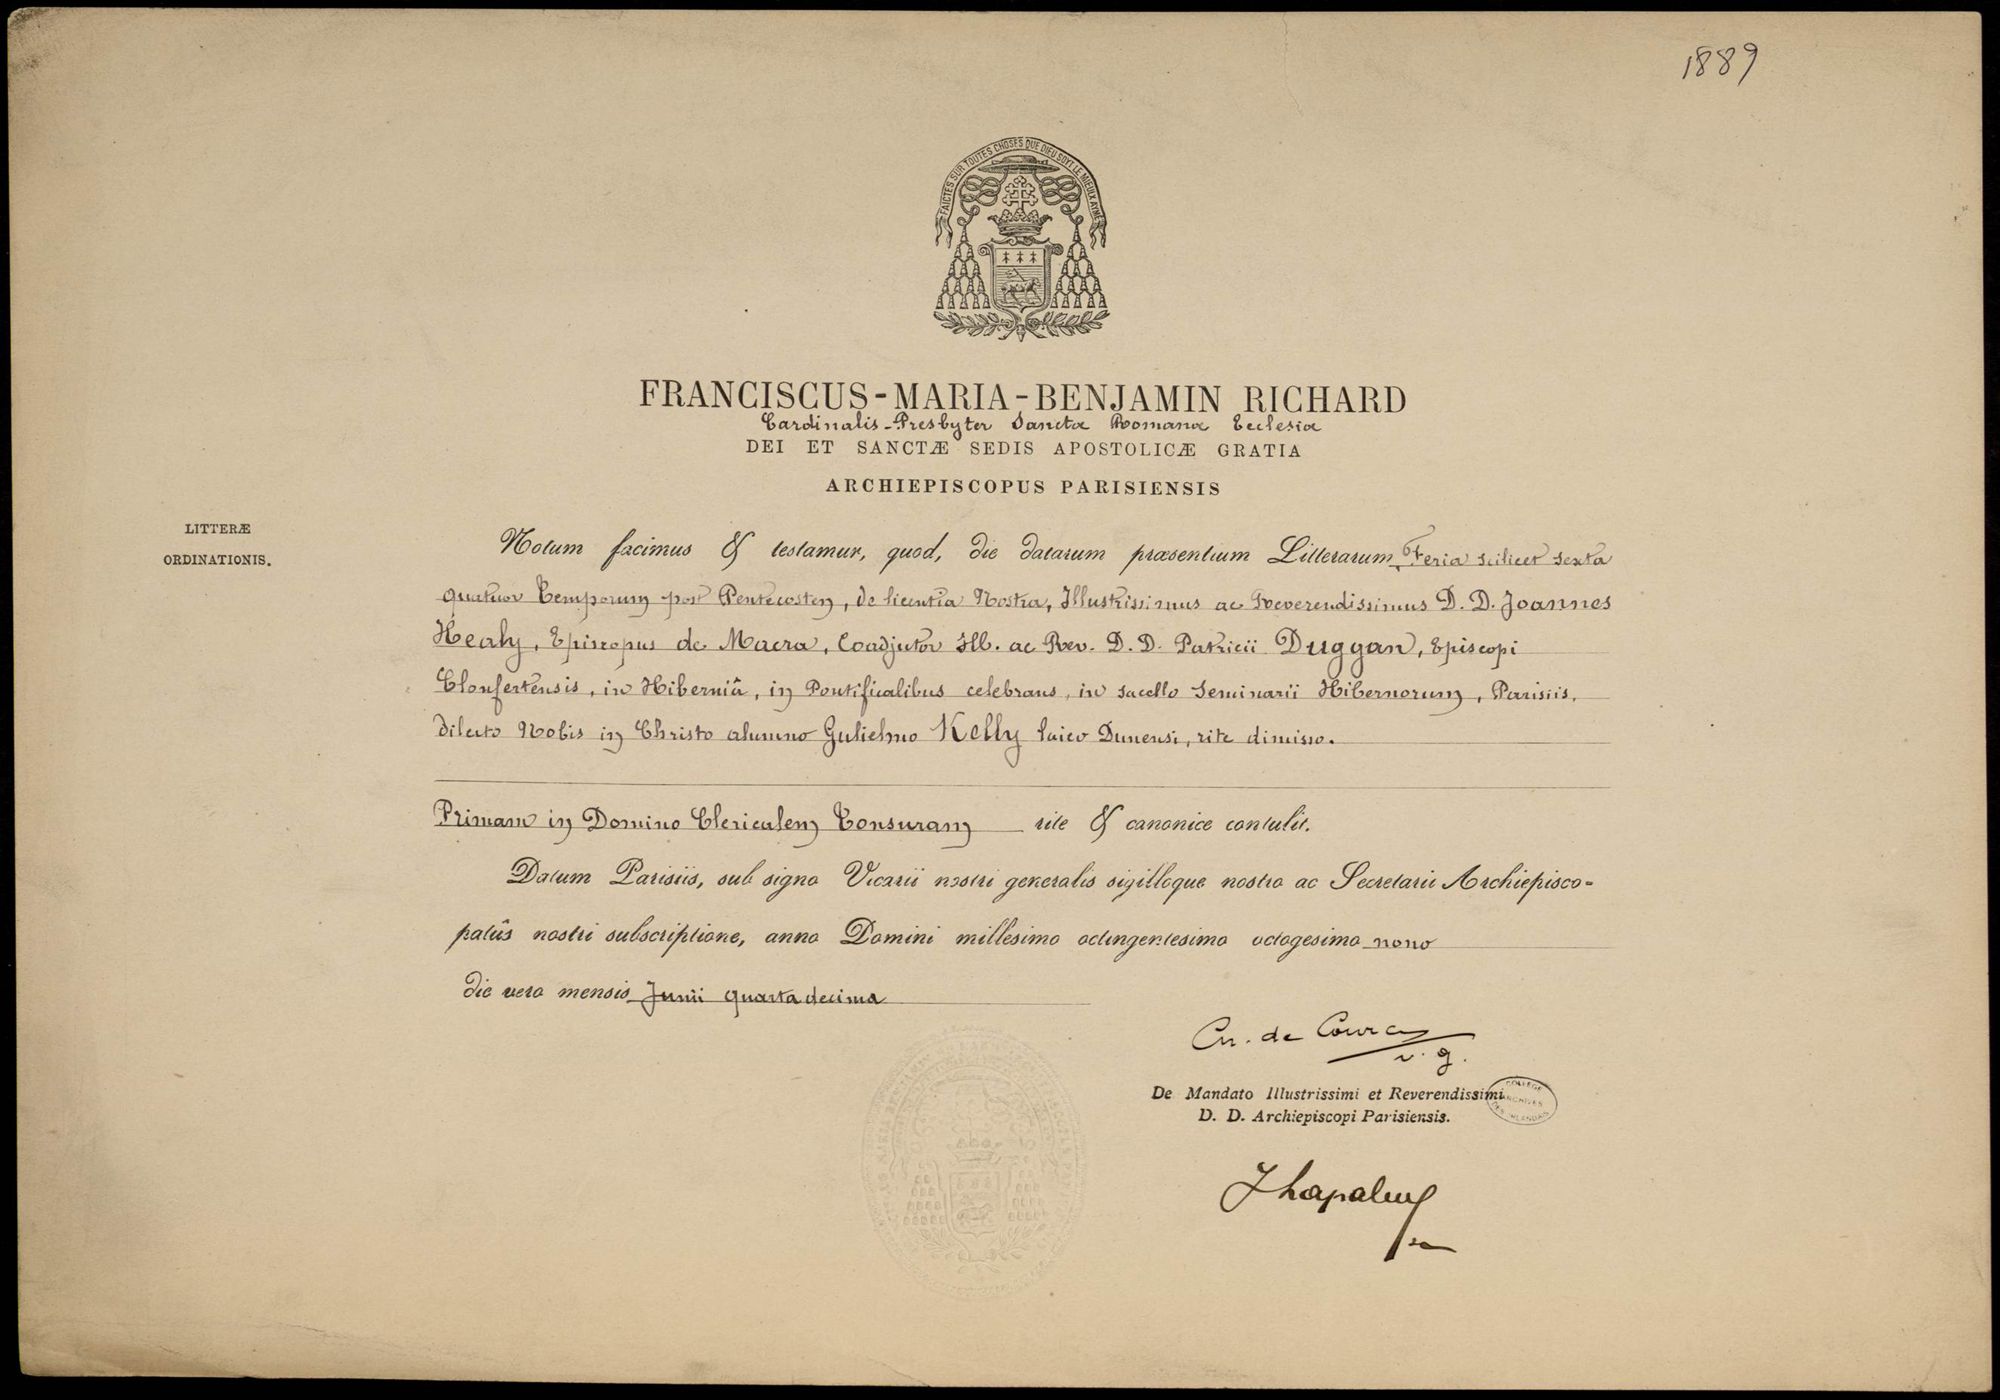 1889
FAICTES SUR TOUTES CHOSES QUE DIEU SOYT LE MIEULX AYMÉ
FRANCISCUS-MARIA-BENJAMIN RICHARD
Cardinalis-Presbyter Sanctæ Romanæ Ecclesiæ
DEI ET SANCTÆ SEDIS APOSTOLICÆ GRATIA
ARCHIEPISCOPUS PARISIENSIS
LITTERÆ
ORDINATIONIS.
Notum facimus & testamur, quod, die datarum præsentium Litterarum, Feria scilicet sexta
quatuor Temporum post Pentecosten, de licentia Nostra, Illustrissimus ac Reverendissimus D. D. Joannes
Healy, Episcopus de Macra, Coadjutor Ill. ac Rev. D. D. Patricii Duggan, Episcopi
Clonfertensis, in Hiberniâ, in Pontificalibus celebrans, in sacello Seminarii Hibernorum, Parisiis,
dilecto Nobis in Christo alumno Gulielmo Kelly laico Dunensi, rite dimisso.
Primam in Domino Clericalem Tonsuram rite & canonice contulit.
Datum Parisiis, sub signo Vicarii nostri generalis sigilloque nostro ac Secretarii Archiepisco-
patûs nostri subscriptione, anno Domini millesimo octingentesimo octogesimo nono
die vero mensis Junii quarta decima
de Courcy
v. g.
De Mandato Illustrissimi et Reverendissimi
D. D. Archiepiscopi Parisiensis.
COLLEGE
DES IRLANDAIS
ARCHIVES